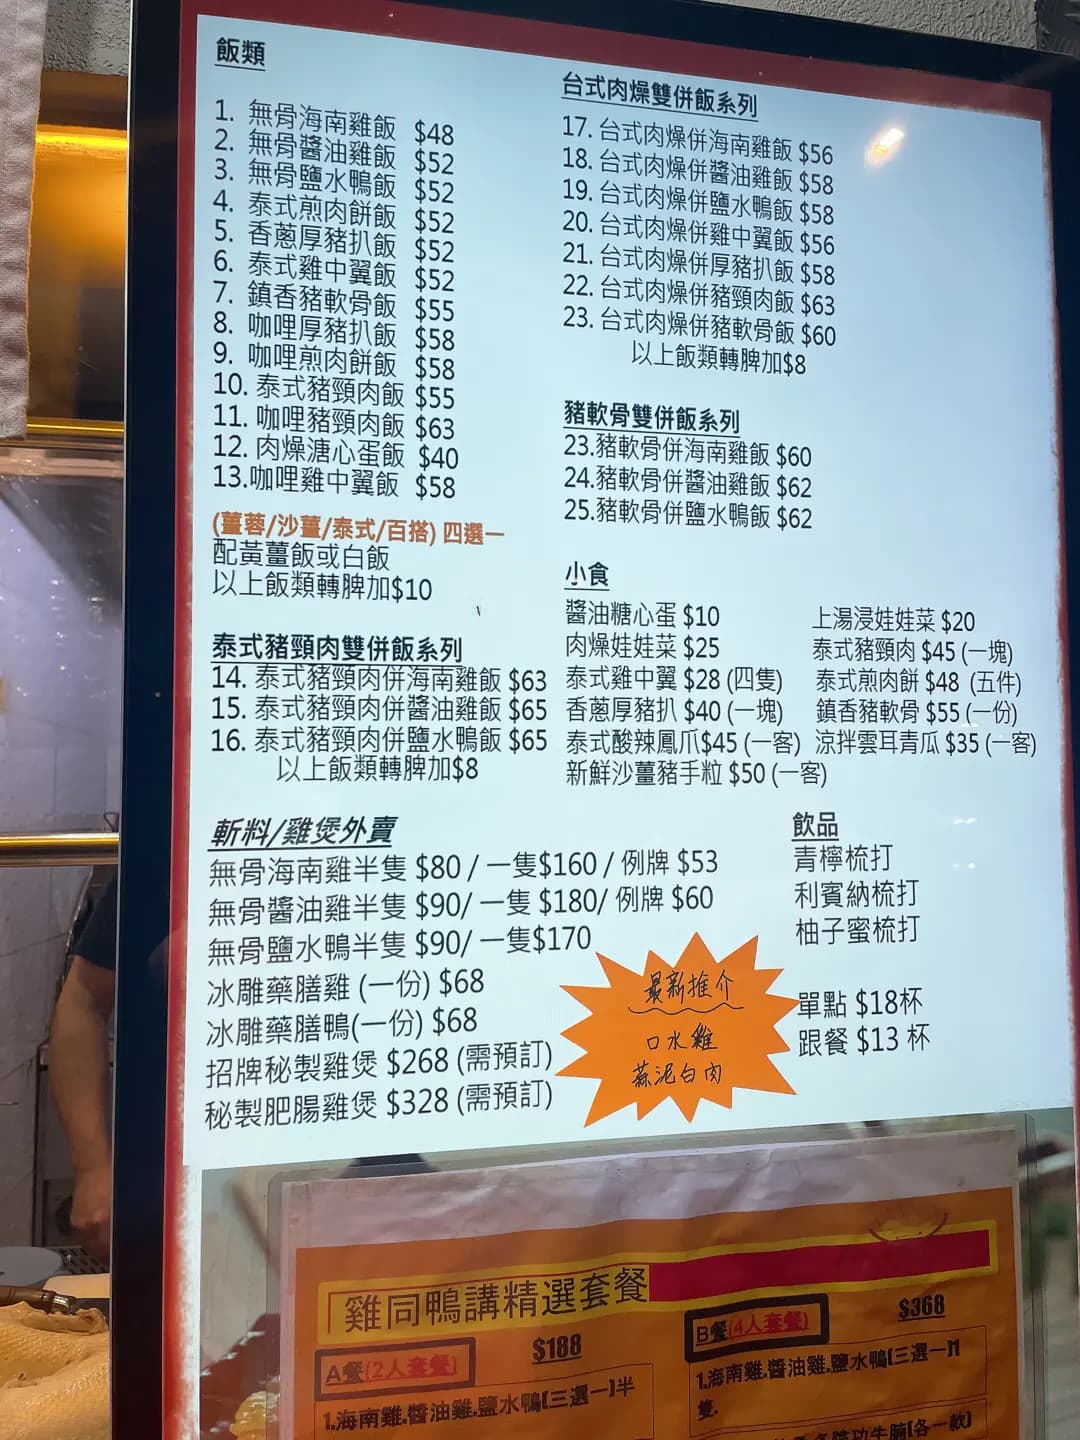 飯類
1. 無骨海南雞飯 $48
2. 無骨醬油雞飯 $52
3. 無骨鹽水鴨飯 $52
4. 泰式煎肉餅飯 $52
5. 香蔥厚豬扒飯 $52
6. 泰式雞中翼飯 $52
7. 鎮香豬軟骨飯 $55
8. 咖哩厚豬扒飯 $58
9. 咖哩煎肉餅飯 $58
10. 泰式豬頸肉飯 $55
11. 咖哩豬頸肉飯 $63
12. 肉燥溏心蛋飯 $40
13.咖哩雞中翼飯 $58
(薑蓉/沙薑/泰式/百搭) 四選一
配黃薑飯或白飯
以上飯類轉脾加$10
泰式豬頸肉雙併飯系列
14. 泰式豬頸肉併海南雞飯 $63
15. 泰式豬頸肉併醬油雞飯 $65
16. 泰式豬頸肉併鹽水鴨飯 $65
以上飯類轉脾加$8
台式肉燥雙併飯系列
17. 台式肉燥併海南雞飯 $56
18. 台式肉燥併醬油雞飯 $58
19. 台式肉燥併鹽水鴨飯 $58
20. 台式肉燥併雞中翼飯 $56
21. 台式肉燥併厚豬扒飯 $58
22. 台式肉燥併豬頸肉飯 $63
23. 台式肉燥併豬軟骨飯 $60
以上飯類轉脾加$8
豬軟骨雙併飯系列
23.豬軟骨併海南雞飯 $60
24.豬軟骨併醬油雞飯 $62
25.豬軟骨併鹽水鴨飯 $62
小食
醬油糖心蛋 $10
肉燥娃娃菜 $25
泰式雞中翼 $28 (四隻)
香蔥厚豬扒 $40 (一塊)
泰式酸辣鳳爪$45 (一客)
新鮮沙薑豬手粒 $50 (一客)
上湯浸娃娃菜 $20
泰式豬頸肉 $45 (一塊)
泰式煎肉餅 $48 (五件)
鎮香豬軟骨 $55 (一份)
涼拌雲耳青瓜 $35 (一客)
斬料/雞煲外賣
無骨海南雞半隻 $80 / 一隻$160 / 例牌 $53
無骨醬油雞半隻 $90/ 一隻 $180/ 例牌 $60
無骨鹽水鴨半隻 $90/ 一隻$170
冰雕藥膳雞 (一份) $68
冰雕藥膳鴨(一份) $68
招牌秘製雞煲 $268 (需預訂)
秘製肥腸雞煲 $328 (需預訂)
飲品
青檸梳打
利賓納梳打
柚子蜜梳打
單點 $18杯
跟餐 $13 杯
最新推介
口水雞
蒜泥白肉
「雞同鴨講精選套餐
A餐(2人套餐) $188
1.海南雞.醬油雞.鹽水鴨(三選一)半
B餐(4人套餐) $368
1.海南雞.醬油雞.鹽水鴨(三選一)1
隻.
功牛腩(各一款)